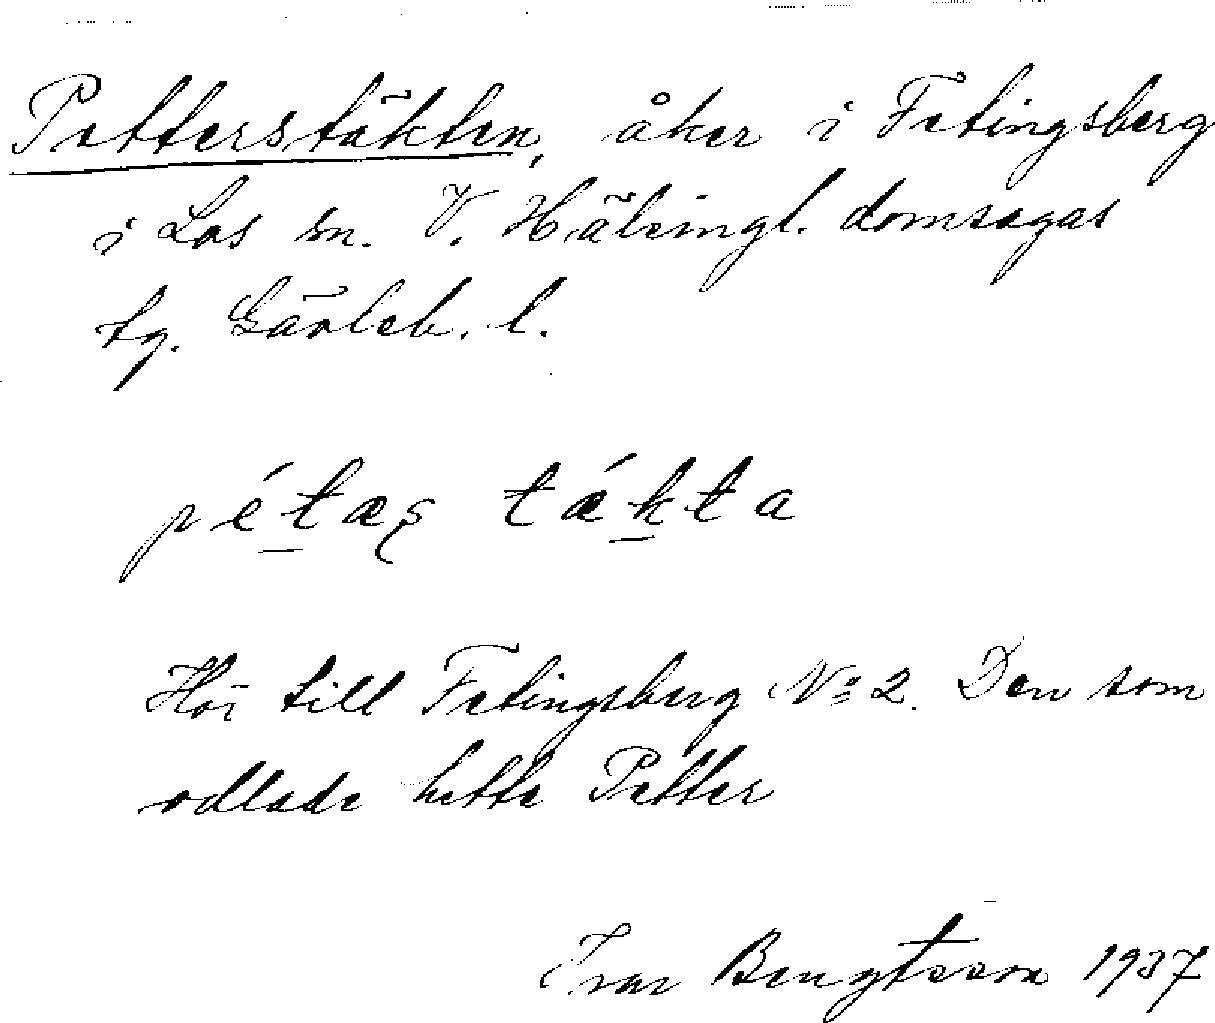 Petterstäkten, åker i Fetingsberg
i Los sn. V. Hälsingl. domsagas
tg. Gävleb. l.
pétæş tǽkta
Hör till Fetingsberg No 2. Den som
odlade hette Petter
Ivar Bengtsson 1937